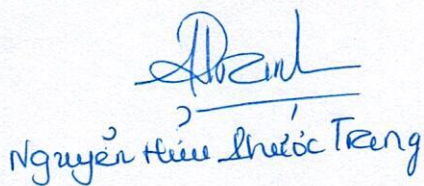 Nguyễn Hữu Phước Trung